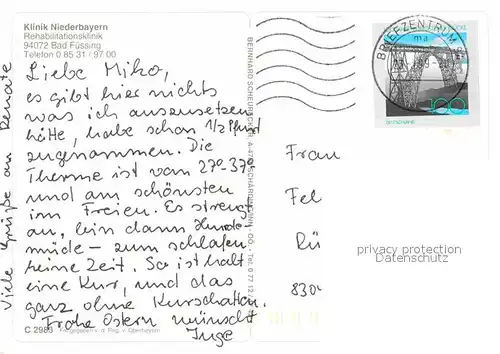 Klinik Niederbayern
Rehabilitationsklinik
94072 Bad Füssing
Telefon 0 85 31 / 97 00
Liebe Miko,
es gibt hier nichts
was ich auszusetzen
hätte, habe schon 1/2 Pfund
zugenommen. Die
Therme ist von 27°-37°
und am schönsten
im Freien. Es strengt
an, bin dann Hunde-
müde – zum schlafen
keine Zeit. So ist halt
eine Kur, und das
ganz ohne Kurschatten.
Frohe Ostern wünscht
Inge
Viele Grüße an Renate
C 2983
BRIEFZENTRUM
100
Frau
Fel
Rü
830
privacy protection
Datenschutz